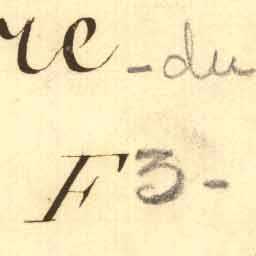 re - du
F 3 -